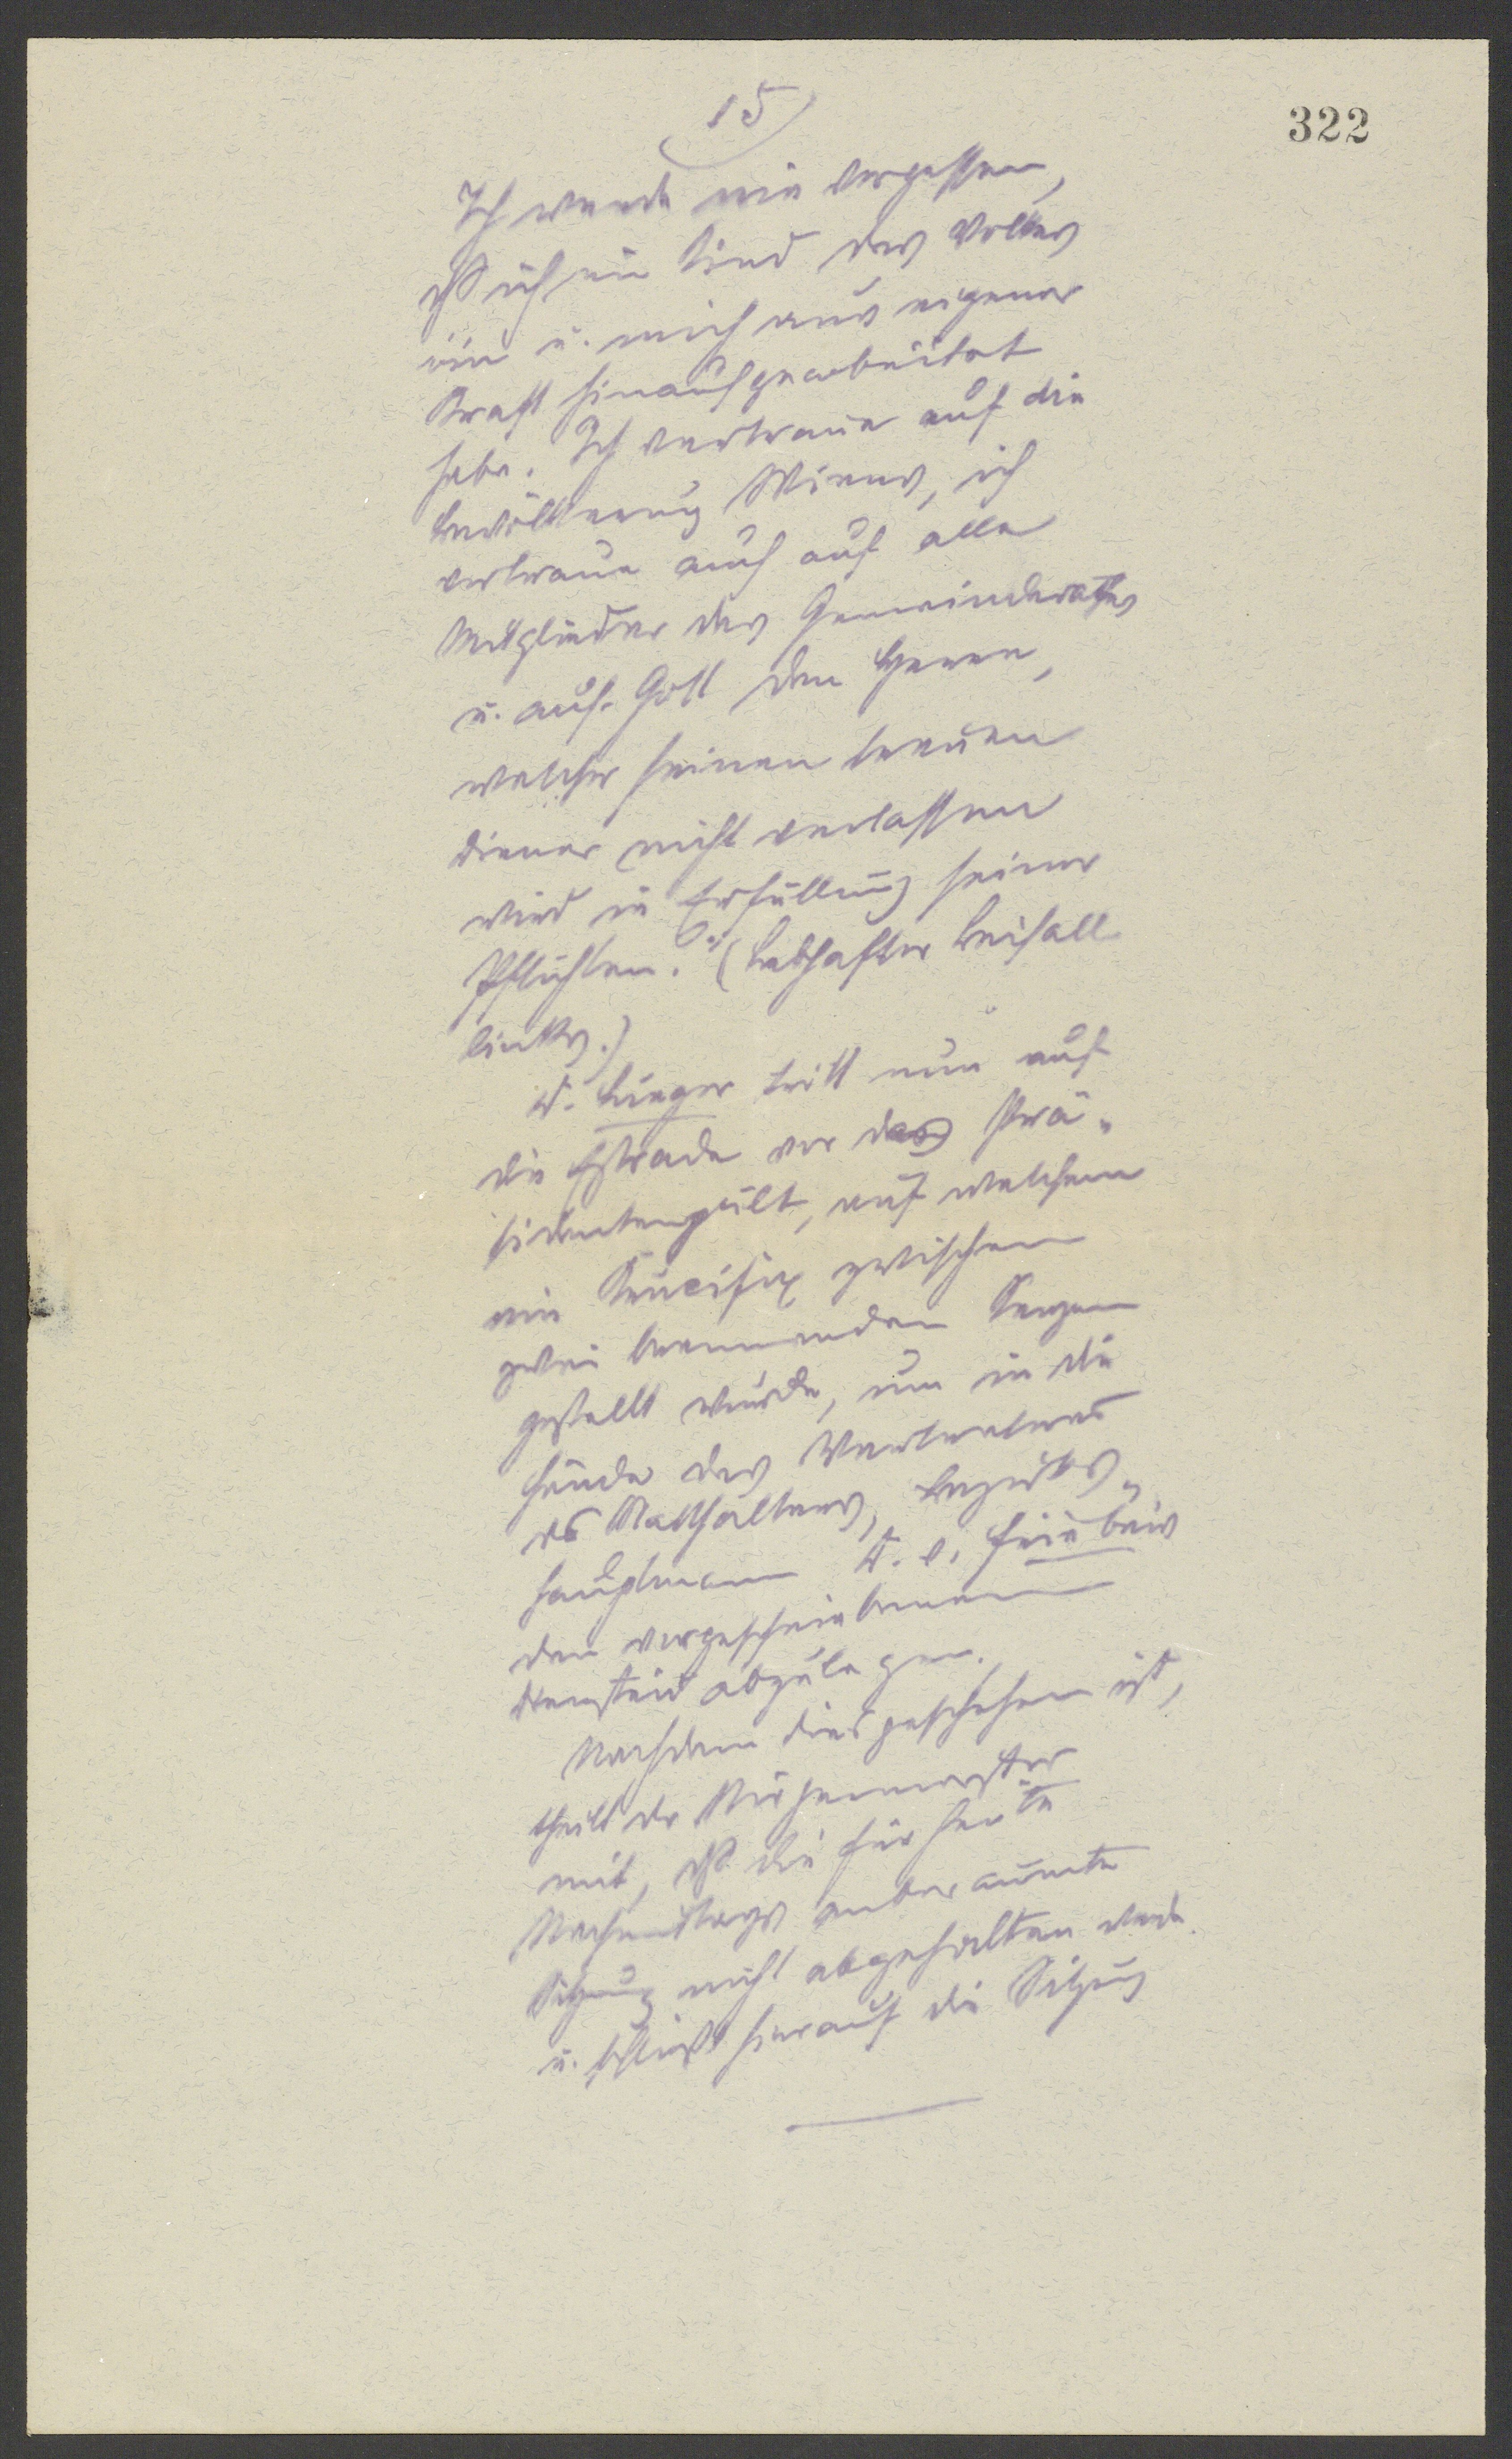 15)
322
Ich werde nie vergessen,
dß ich ein Kind des Volkes
bin u. mich aus eigener
Kraft hinaufgearbeitet
habe. Ich vertraue auf die
Bevölkerung Wiens, ich
vertraue auch auf alle
Mitglieder des Gemeinderathes
u. auf Gott den Herrn,
welcher seinen treuen
Diener nicht verlassen
wird in Erfüllung seiner
Pflichten." (Lebhafter Beifall
links.)
Dr. Lueger tritt nun auf
die Estrade vor das Prä-
sidentenpult, auf welchem
ein Krucifix zwischen
zwei brennenden Kerzen
gestellt wurde, um in die
Hände des Vertreters
des Statthalters, Bezirks-
hauptmann Dr. v.
den vorgeschriebenen
Diensteid abzulegen.
Nachdem dies geschehen ist,
theilt der Bürgermeister
mit, dß die für heute
Nachmittags anberaumte
Sitzung nicht abgehalten werde
u. schließt hierauf die Sitzung